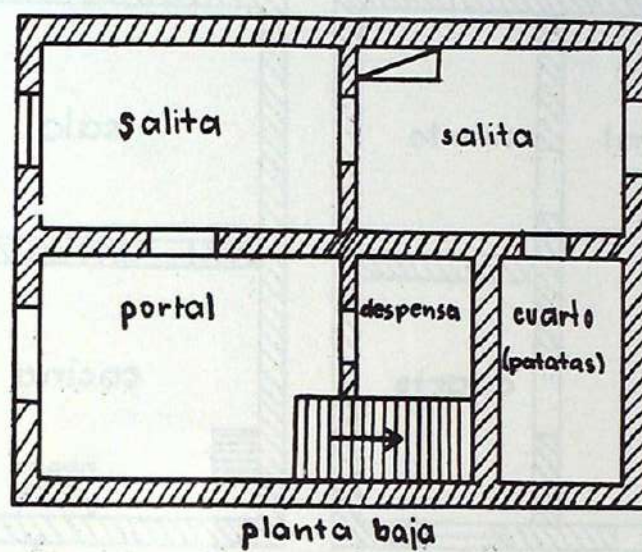 salita
salita
portal
despensa
cuarto
(patatas)
planta baja